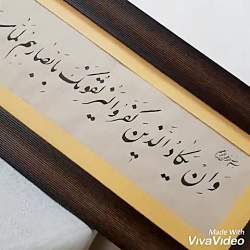 وَاِنْ یَکادُ الَّذینَ کَفَرُوا لَیُزْلِقُونَکَ بِاَبْصارِهِمْ لَمّا
Made With
VivaVideo